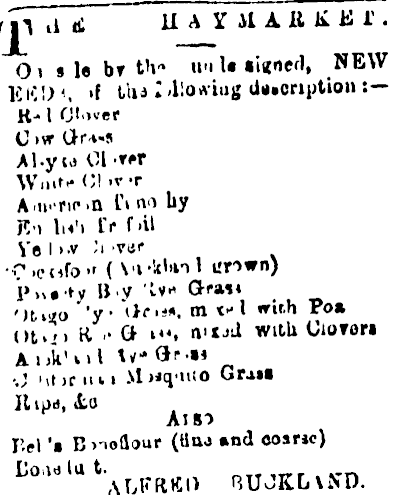 THE HAYMARKET.
On sale by the undersigned, NEW
SEEDS, of the following description :—
Red Clover
Cow Grass
Alsyke Clover
White Clover
American Timothy
English Trefoil
Yellow Clover
Cocksfoot (Auckland grown)
Poverty Bay Rye Grass
Otago Rye Grass, mixed with Poa
Otago Rye Grass, mixed with Clovers
Auckland Rye Grass
Mosquito Grass
Rape, &c
ALSO
Bell's Boneflour (fine and coarse)
Bonedust.
ALFRED BUCKLAND.